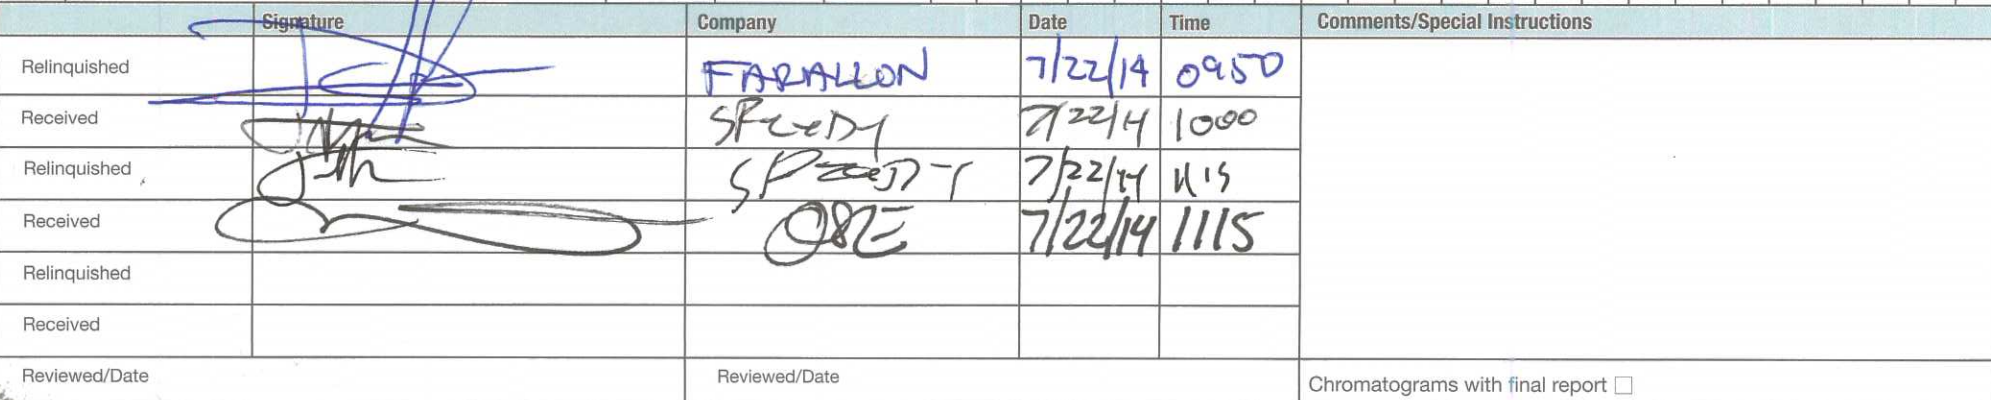 Signature Company Date Time Comments/Special Instructions
Relinquished FARALLON 7/22/14 0950
Received SPEEDY 7/22/14 1000
Relinquished SPEEDY 7/22/14 1115
Received OSE 7/22/14 1115
Relinquished
Received
Reviewed/Date Reviewed/Date Chromatograms with final report